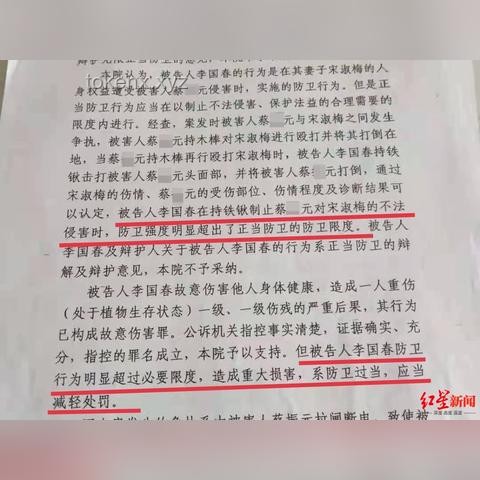 tokenx.xyz
本院认为，被告人李国春的行为是在其妻子宋淑梅的人
身权益遭受被害人蔡 元侵害时，实施的防卫行为。但是正
当防卫行为应当在以制止不法侵害、保护法益的合理需要的
限度内进行。经查，案发时被害人蔡 元与宋淑梅之间发生
争执，被害人蔡 元持木棒对宋淑梅进行殴打并将其打倒在
地，当蔡 元持木棒再行殴打宋淑梅时，被告人李国春持铁
锹击打被害人蔡 元头面部，并将被害人蔡 元打倒，通过
宋淑梅的伤情、蔡 元的受伤部位、伤情程度及诊断结果可
以认定，被告人李国春在持铁锹制止蔡 元对宋淑梅的不法
侵害时，防卫强度明显超出了正当防卫的防卫限度。被告人
李国春及辩护人关于被告人李国春的行为系正当防卫的辩
解及辩护意见，本院不予采纳。
被告人李国春故意伤害他人身体健康，造成一人重伤
（处于植物生存状态）一级、一级伤残的严重后果，其行为
已构成故意伤害罪。公诉机关指控事实清楚，证据确实、充
分，指控的罪名成立，本院予以支持。但被告人李国春防卫
行为明显超过必要限度，造成重大损害，系防卫过当，应当
减轻处罚。
红星新闻
深度 态度 温度